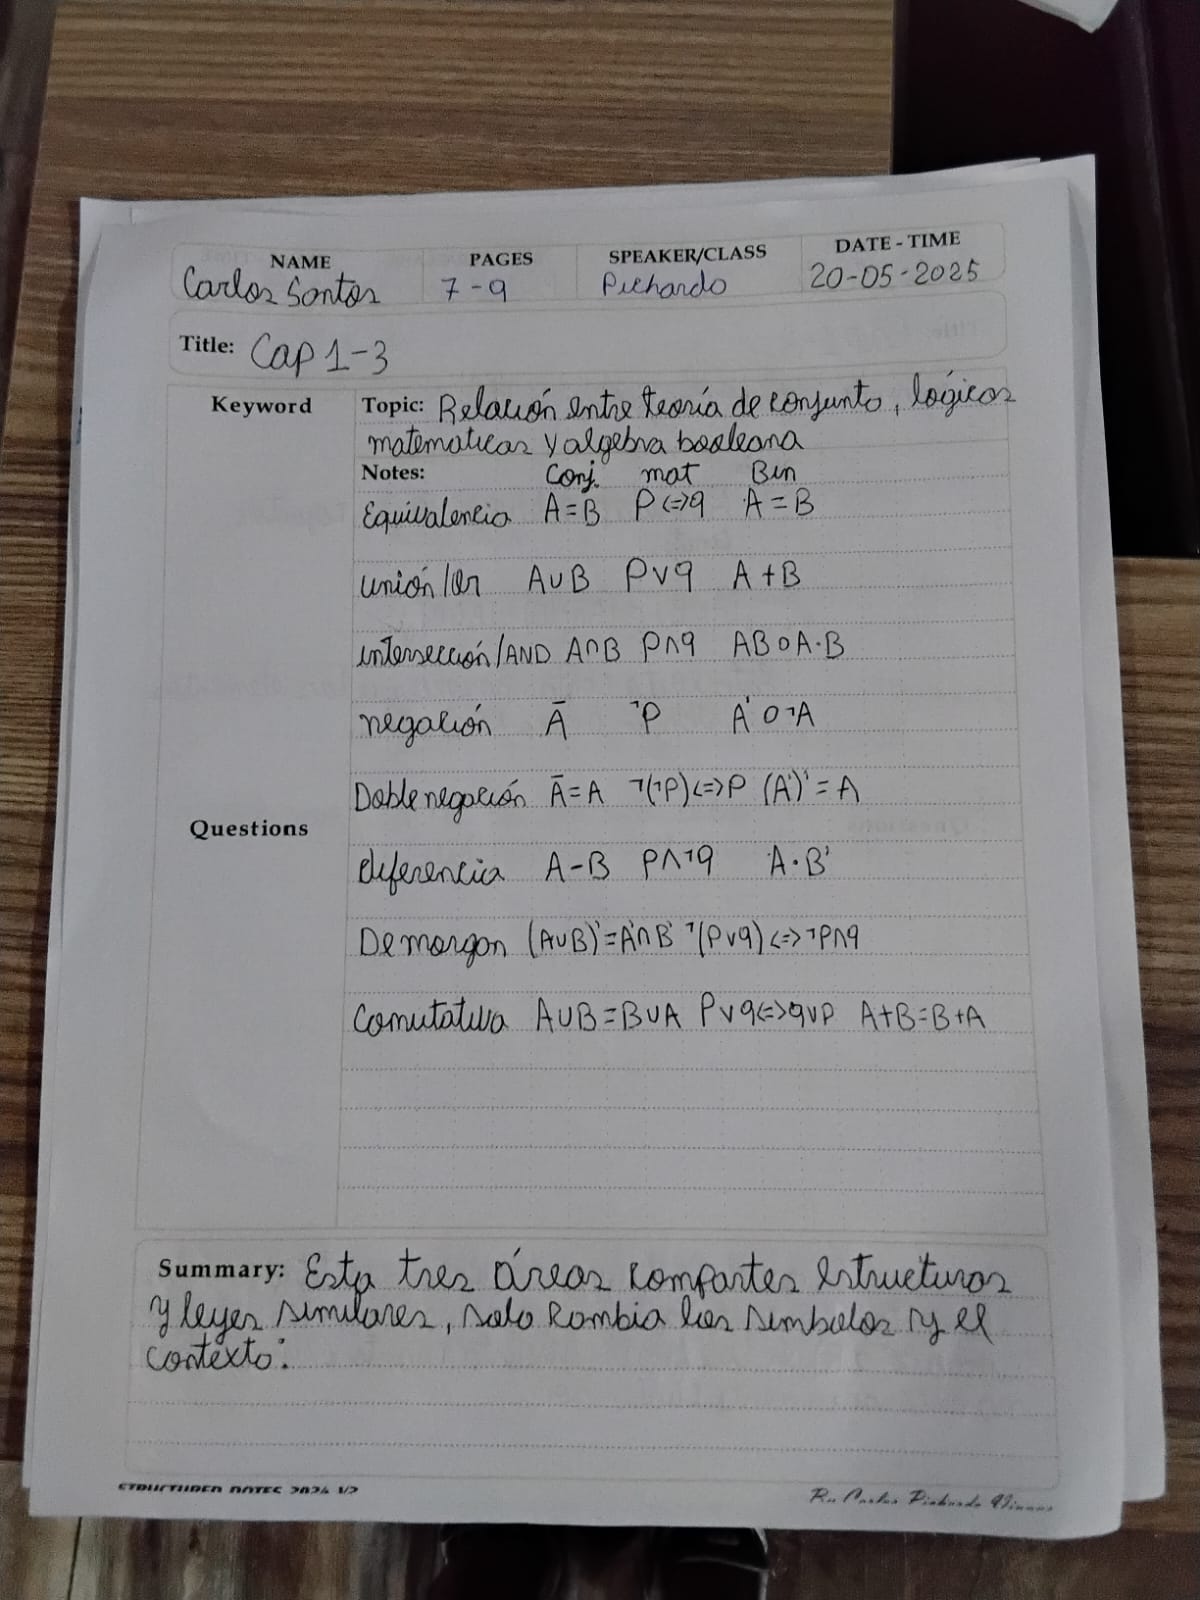 NAME PAGES SPEAKER/CLASS DATE - TIME
Carlos Santos 7-9 Pichardo 20-05-2025
Title: Cap 1-3
Keyword
Topic: Relación entre teoría de conjunto, lógicas
matematicas y algebra booleana
Notes: Conj. mat Bin
Equivalencia A=B P<=>q A=B
unión/or A∪B P∨q A+B
intersección/AND A∩B P∧q AB o A·B
negación Ā ¬P A' o ¬A
Doble negación Ā=A ¬(¬P)<=>P (A')'=A
Questions
diferencia A-B P∧¬q A·B'
Demorgan (A∪B)'=A'∩B' ¬(P∨q)<=>¬P∧q
Comutativa A∪B=B∪A P∨q<=>q∨P A+B=B+A
Summary: Esta tres áreas compartes estructuras
y leyes similares, solo cambia los simbolos y el
contexto.
STRUCTURED NOTES 2024 V2